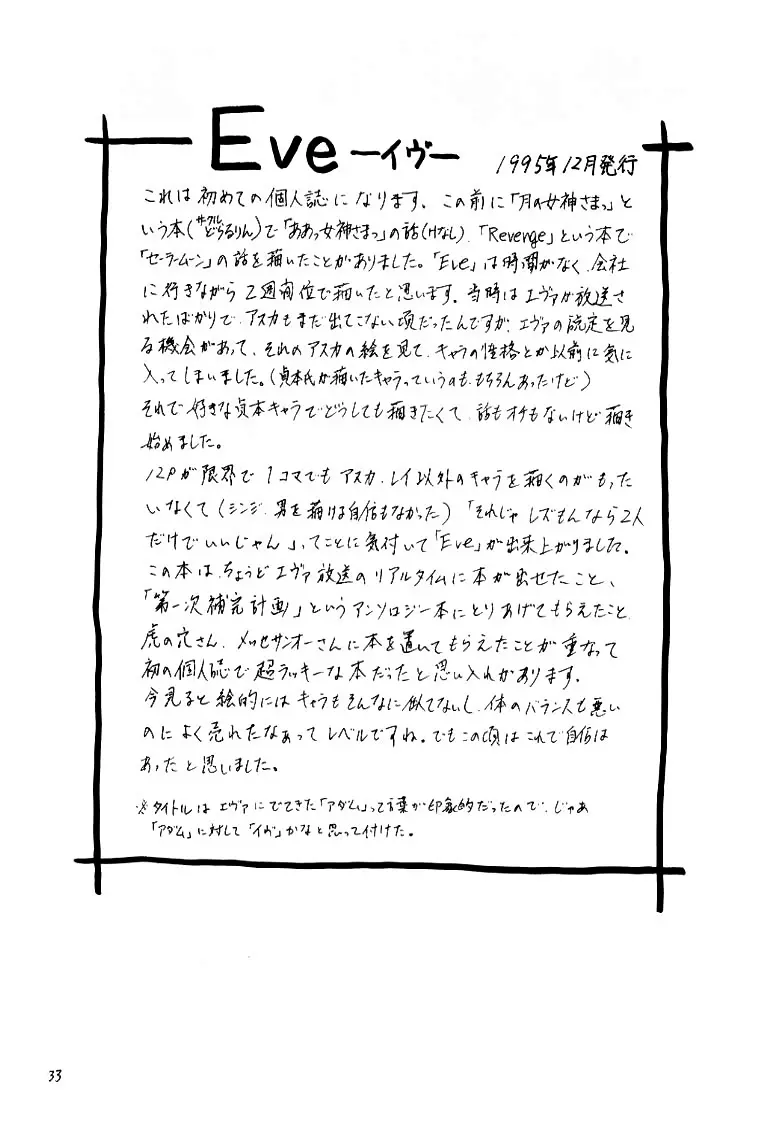 Eve ーイヴー 1995年12月発行
これは初めての個人誌になります、この前に「月の女神さまっ」と
いう本(サークルどらるりん)で「ああっ女神さまっ」の話(Hなし)、「Revenge」という本で
「セーラームーン」の話を描いたことがありました。「Eve」は時間がなく、会社
に行きながら2週間位で描いたと思います。当時はエヴァが放送さ
れたばかりで、アスカもまだ出てこない頃だったんですが、エヴァの設定を見
る機会があって、それのアスカの絵を見て、キャラの性格とか以前に気に
入ってしまいました。(貞本氏が描いたキャラっていうのも、もちろんあったけど)
それで好きな貞本キャラでどうしても描きたくて、話もオチもないけど描き
始めました。
12Pが限界で1コマでもアスカ、レイ以外のキャラを描くのがもった
いなくて(シンジ、男を描ける自信もなかった)「それじゃレズもんなら2人
だけでいいじゃん」ってことに気付いて「Eve」が出来上がりました。
この本は、ちょうどエヴァ放送のリアルタイムに本が出せたこと、
「第一次補完計画」というアンソロジー本にとりあげてもらえたこと、
虎の穴さん、メッセサンオーさんに本を置いてもらえたことが重なって
初の個人誌で超ラッキーな本だったと思い入れがあります。
今見ると絵的にはキャラもそんなに似てないし、体のバランスも悪い
のによく売れたなあってレベルですね。でもこの頃はこれで自信は
あったと思いました。
※タイトルはエヴァにでてきた「アダム」って言葉が印象的だったので、じゃあ
「アダム」に対して「イヴ」かなと思って付けた。
33